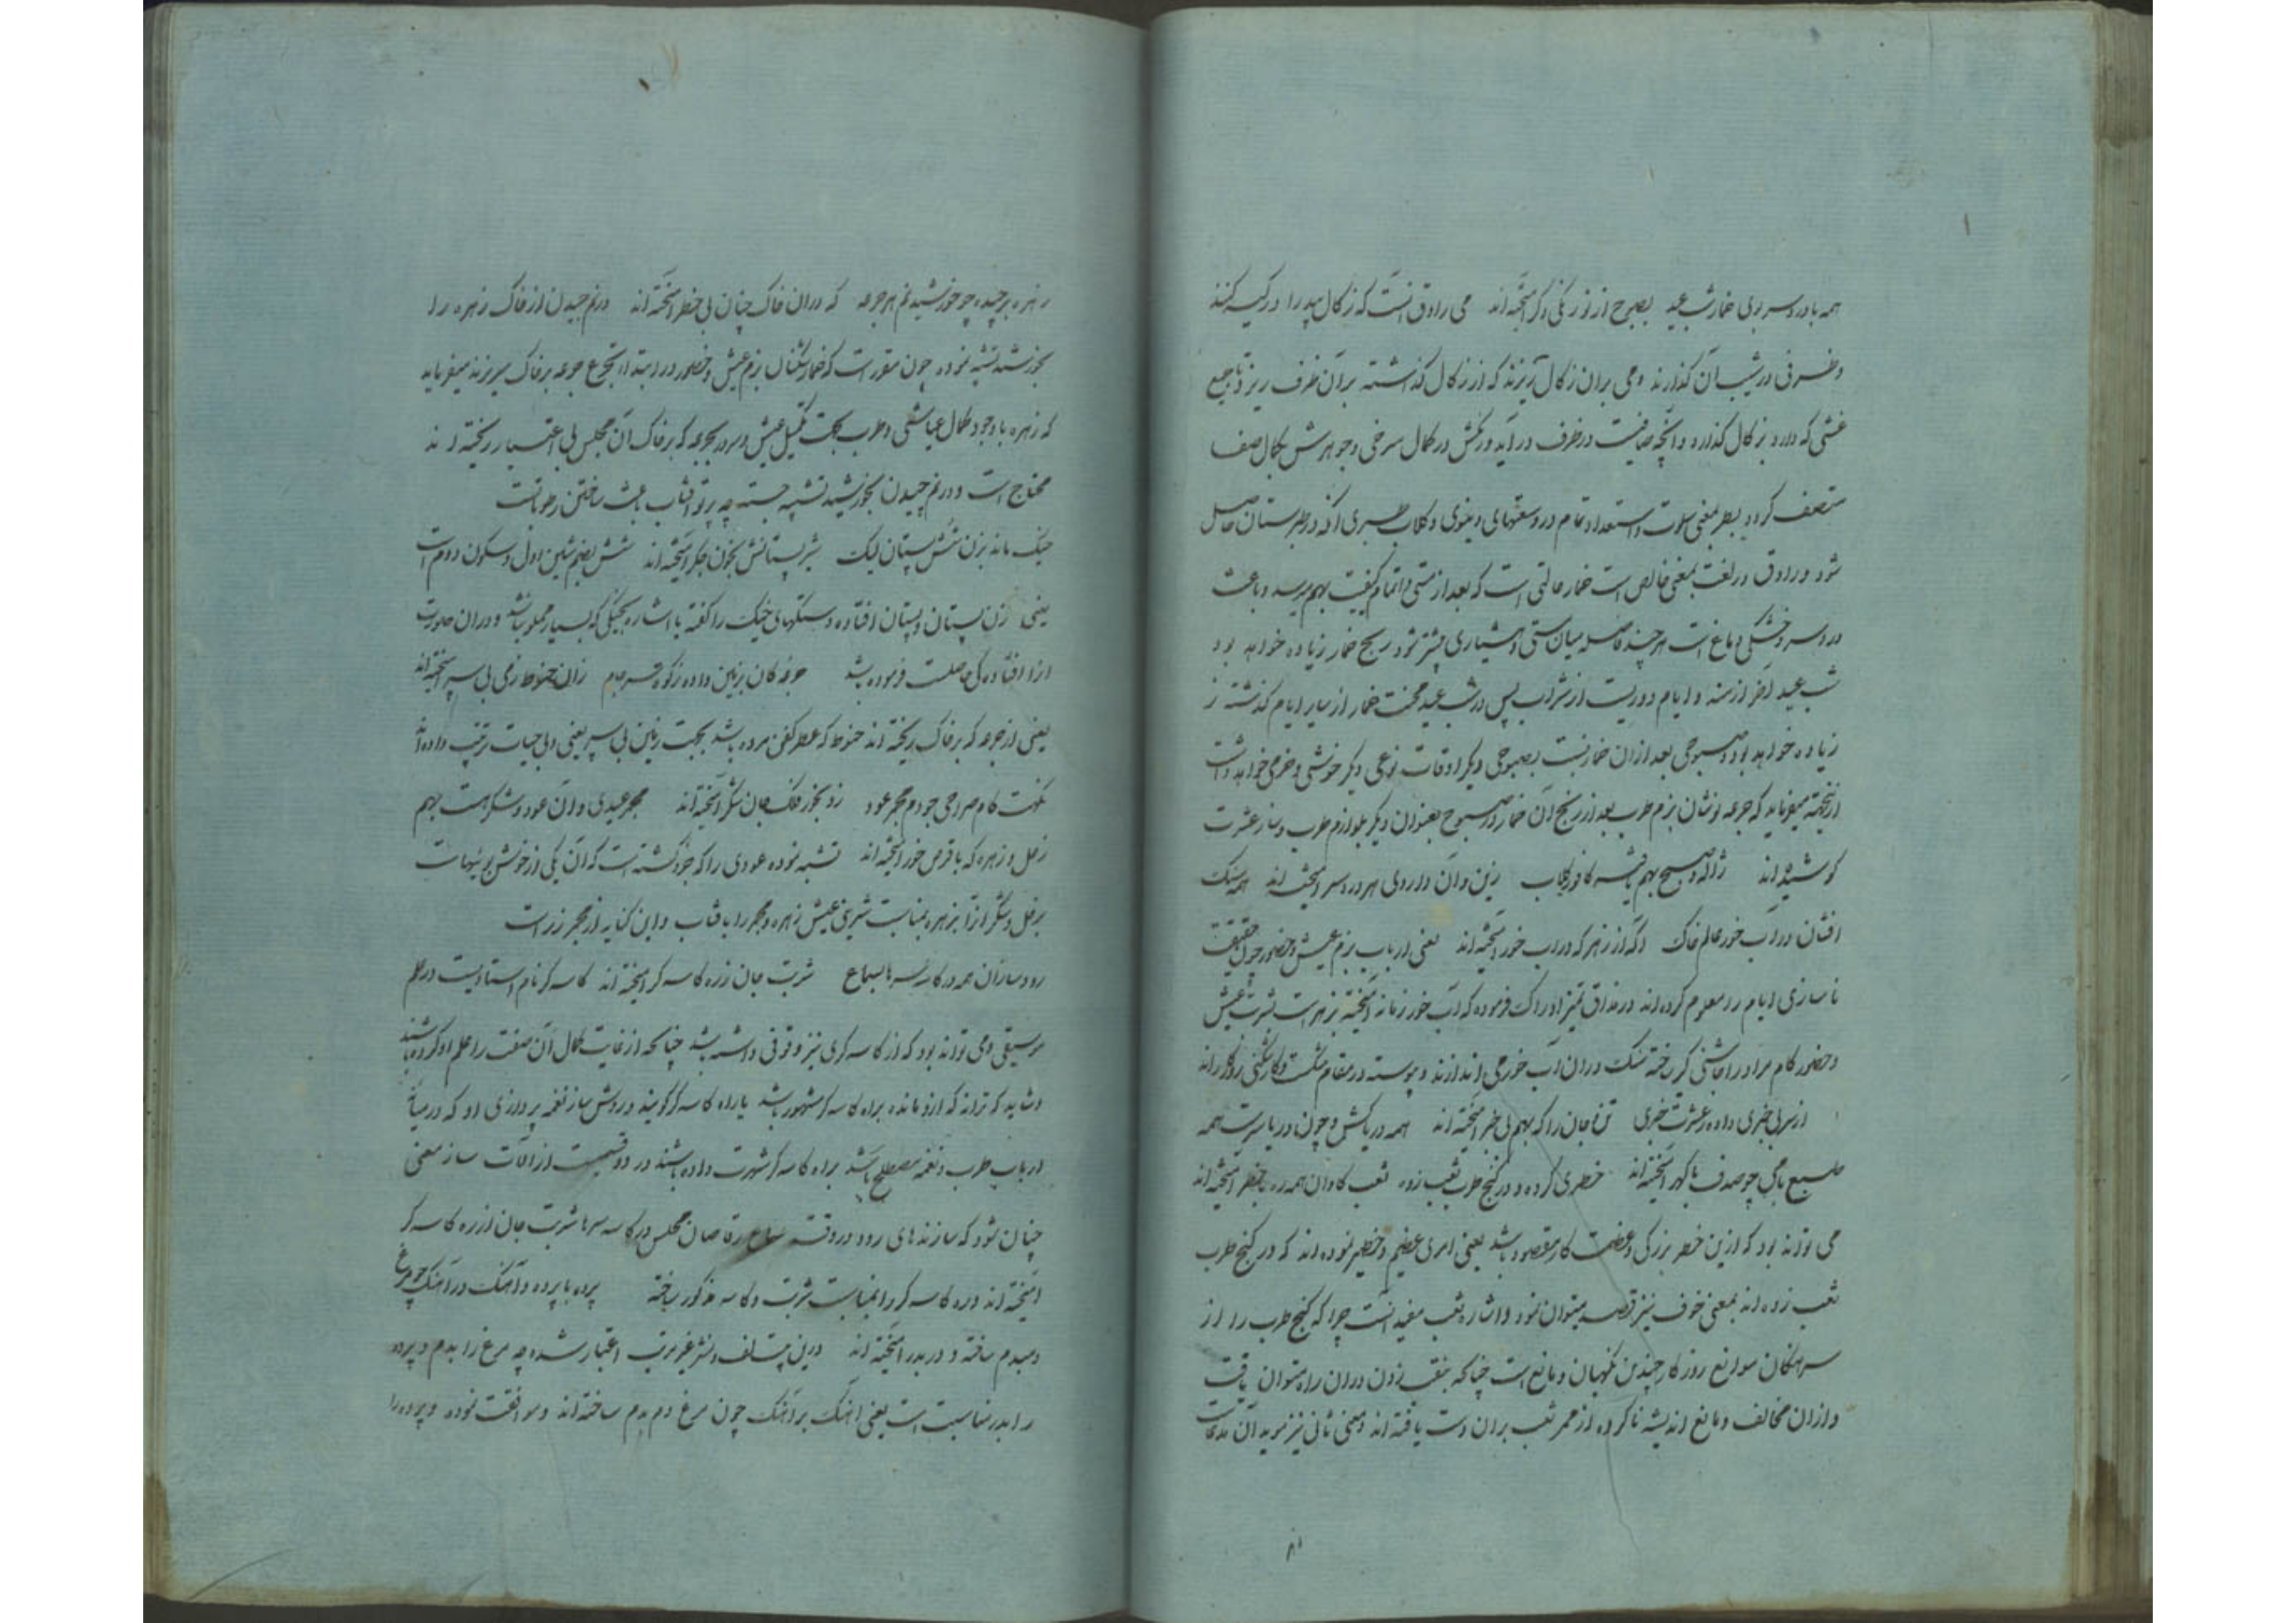 همه با درد سر بوی خمار شب عید بصبوح از نو رنگی دگر آمیخته‌اند می راوق آنست که زگال بید را در کیسه کنند
و ظرفی در شیب آن گذارند و می بران زگال ریزند که از زگال گذشته بر آن ظرف ریزد تا جمیع
غشی که دارد بزگال گذارد و آنچه صافیست در ظرف در آید و رنگش در کمال سرخی و جوهرش بکمال صفا
متصف گردد بمعنی و استعداد تمام در وسعتهای دنیوی و کلاب طبری آنکه در طبرستان حاصل
شود و راوق در لغت بمعنی خالص است خمار حالتی است که بعد از مستی و اتمام کیفیت بهم میرسد و باعث
درد سر و خشکی دماغ است هر چند فاصله میان مستی و هشیاری بیشتر شود رنج خمار زیاده خواهد بود
شب عید آخر ازمنه و ایام دوریست از شراب پس در شب عید محنت خمار از سایر ایام گذشته ز
زیاده خواهد بود و صبوحی بعد از ان خمار نسبت بصبوحی دیگر اوقات نوعی دیگر خوشی و خرمی خواهد داشت
ازینجهة میفرماید که جرعه نوشان بزم طرب بعد از رنج آن خمار در صبوح بعنوان دیگر بلوازم طرب و ساز عشرت
کوشیده‌اند ژاله و صبح بهم یافته کافور و گلاب زین و آن داروی هر درد سر آمیخته‌اند همه سنگ
افشان در آب خور عالم خاک آنکه از زهر که در آب خور آمیخته‌اند یعنی ارباب بزم عیش و حضور چون حقیقت
ناسازی ایام را معلوم کرده‌اند در مذاق تمیز ادراک فرموده که آب خور زمانه آمیخته بزهر است شربت عیش
و حضور کام مراد را چاشنی گیر ساخته سنگ در ان آب خور می اندازند و پیوسته در مقام شکست و کارشکنی روزگارند
از سر بی‌خبری داده و عشرت خبری تن و جان را که بهم بی‌خبر آمیخته‌اند همه دریاکش و چون دریا سرمست همه
طبع با می چو صدف با گهر آمیخته‌اند خطری کرده و در گنج طرب نقب زده نقب کاوان همه ره با خطر آمیخته‌اند
می تواند بود که ازین خطر بزرگی و عظمت کار مقصود باشد یعنی امری عظیم و خطیر نموده‌اند که در گنج طرب
نقب زده‌اند بمعنی خوف نیز قصد میتوان نمود و اشاره نقب مفید آنست چرا که گنج طرب را از
سرهنگان موانع روزگار چندین نگهبان و مانع است چنانکه بنقب زدن در ان راه میتوان یافت
و از ان مخالف و مانع اندیشه ناکرده از ممر نقب بران دست یافته‌اند و معنی ثانی نیز مؤید آن مدعاست
۸۱
زهره برچیده چو خورشید نم هر جرعه که در ان خاک چنان بی‌خطر آمیخته‌اند در نم چیدن از خاک زهره را
بخورشید تشبیه نموده چون مقرر است که خمارشکنان بزم عیش و حضور در ابتدا تجرع جرعه بر خاک میریزند میفرماید
که زهره با وجود کمال عیاشی و طرب بجهت تکمیل عیش و سرور بجرعه که بر خاک آن مجلس بی اختیار ریخته‌اند
محتاج است و در نم چیدن بخورشید تشبیه جسته چه پرتو آفتاب باعث ساختن رطوباتست
خیک ماند بزن شش پستان لیک شیر پستانش بخون جگر آمیخته‌اند شش بضم شین اول و سکون دوم است
یعنی زن سست پستان و پستان افتاده و دستکهای خیک را گفته با اشاره بخیکی که بسیار مملو نباشد و در ان صورت
از او افتادگی حاصلست فرموده باشد جرعه کان بزمین داده زکوة سر جام زان حنوط زمی بی سپر آمیخته‌اند
یعنی از جرعه که بر خاک ریخته‌اند حنوط که عطر کفن مرده باشد بجهت زمین بی سپر یعنی و بی حیات ترتیب داده‌اند
نکهت کام صراحی چو دم مجمر عود زو بخور فلک جان شکر آمیخته‌اند مجمر عیدی و آن عود و شکر هست بهم
زحل و زهره که با قرص خور آمیخته‌اند تشبیه نموده عودی را که جزو گشته است که آن یکی از خوش بوئیهاست
بزحل و شکر از آن بزهره بمناسبت شیرینی عیش زهره و مجمر را بآفتاب و این کنایه از مجمر زر است
رود سازان همه در کاسه سرها بسماع شربت جان ز ره کاسه گر آمیخته‌اند کاسه گر نام استادیست در علم
موسیقی و می تواند بود که از کاسه گری نیز وقوفی داشته باشد چنانکه از غایت کمال آن صنعت را علم او کرده باشند
و شاید که ترانه که ازو مانده براه کاسه گر مشهور باشد یا راه کاسه گر گویند و روش ساز نغمه پردازی او که در میانه
ارباب طرب و نغمه مصطلح باشد براه کاسه گر شهرت داده باشند در دو قسمت از آلات ساز معنی
چنان شود که سازندهای رود در وقت سماع رقاصان مجلس در کاسه سرها شربت جان از ره کاسه گر
آمیخته‌اند و ره کاسه گر را بمناسبت شربت و کاسه مذکور ساخته پرده با پرده و آهنگ در آهنگ چو مرغ
دمبدم ساخته و دربدر آمیخته‌اند درین بیت لف و نشر غیر مرتب اعتبار شده چه مرغ را بدم و پرده
را بدر مناسبت است یعنی آهنگ بر آهنگ چون مرغ دم بدم ساخته‌اند و موافقت نموده و پرده را